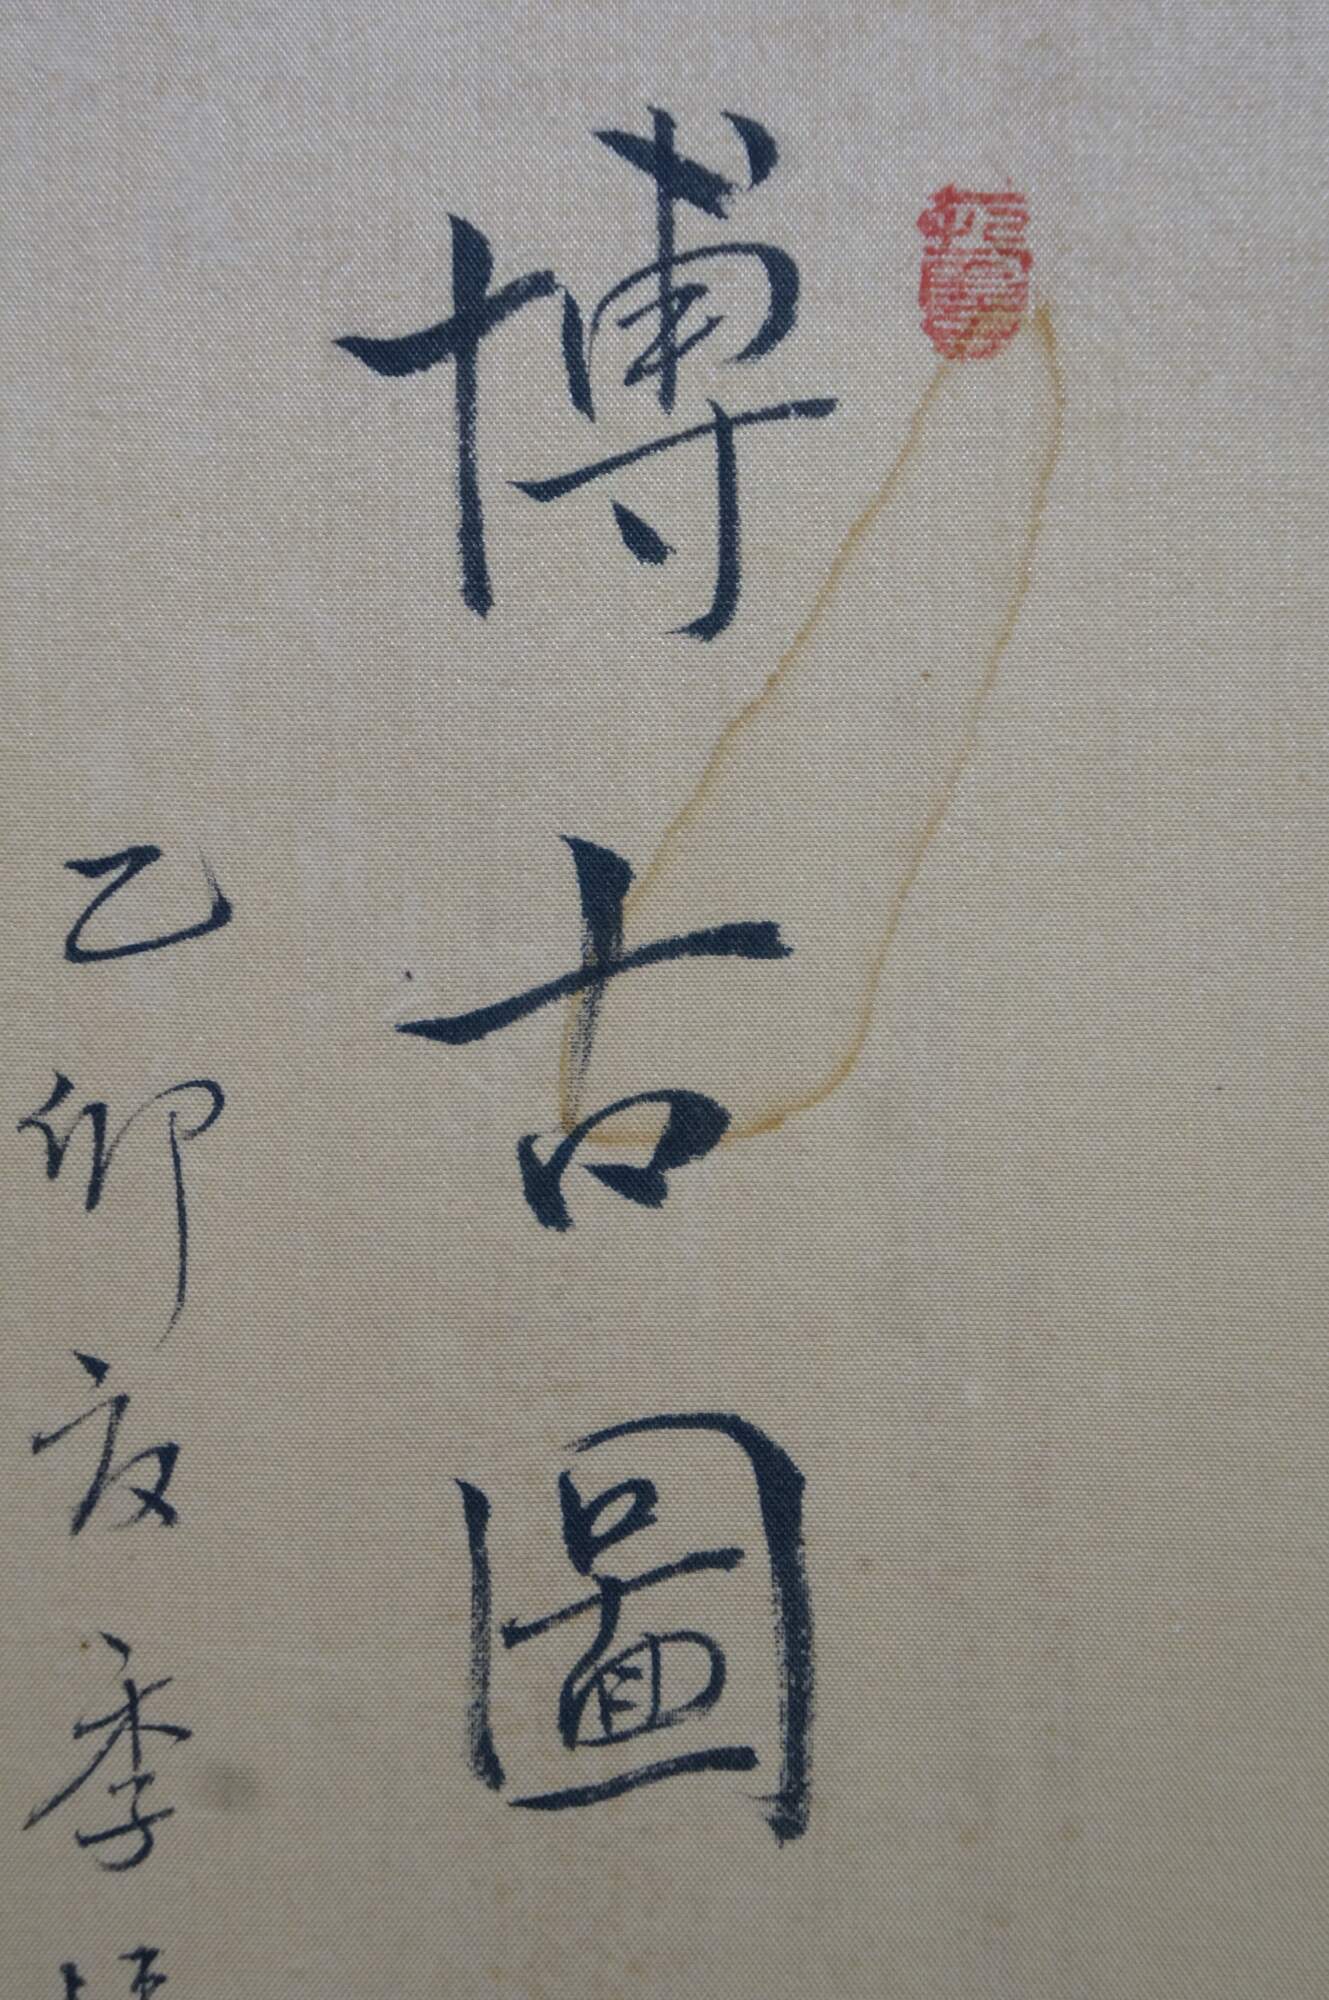 博古圖
乙卯夜季